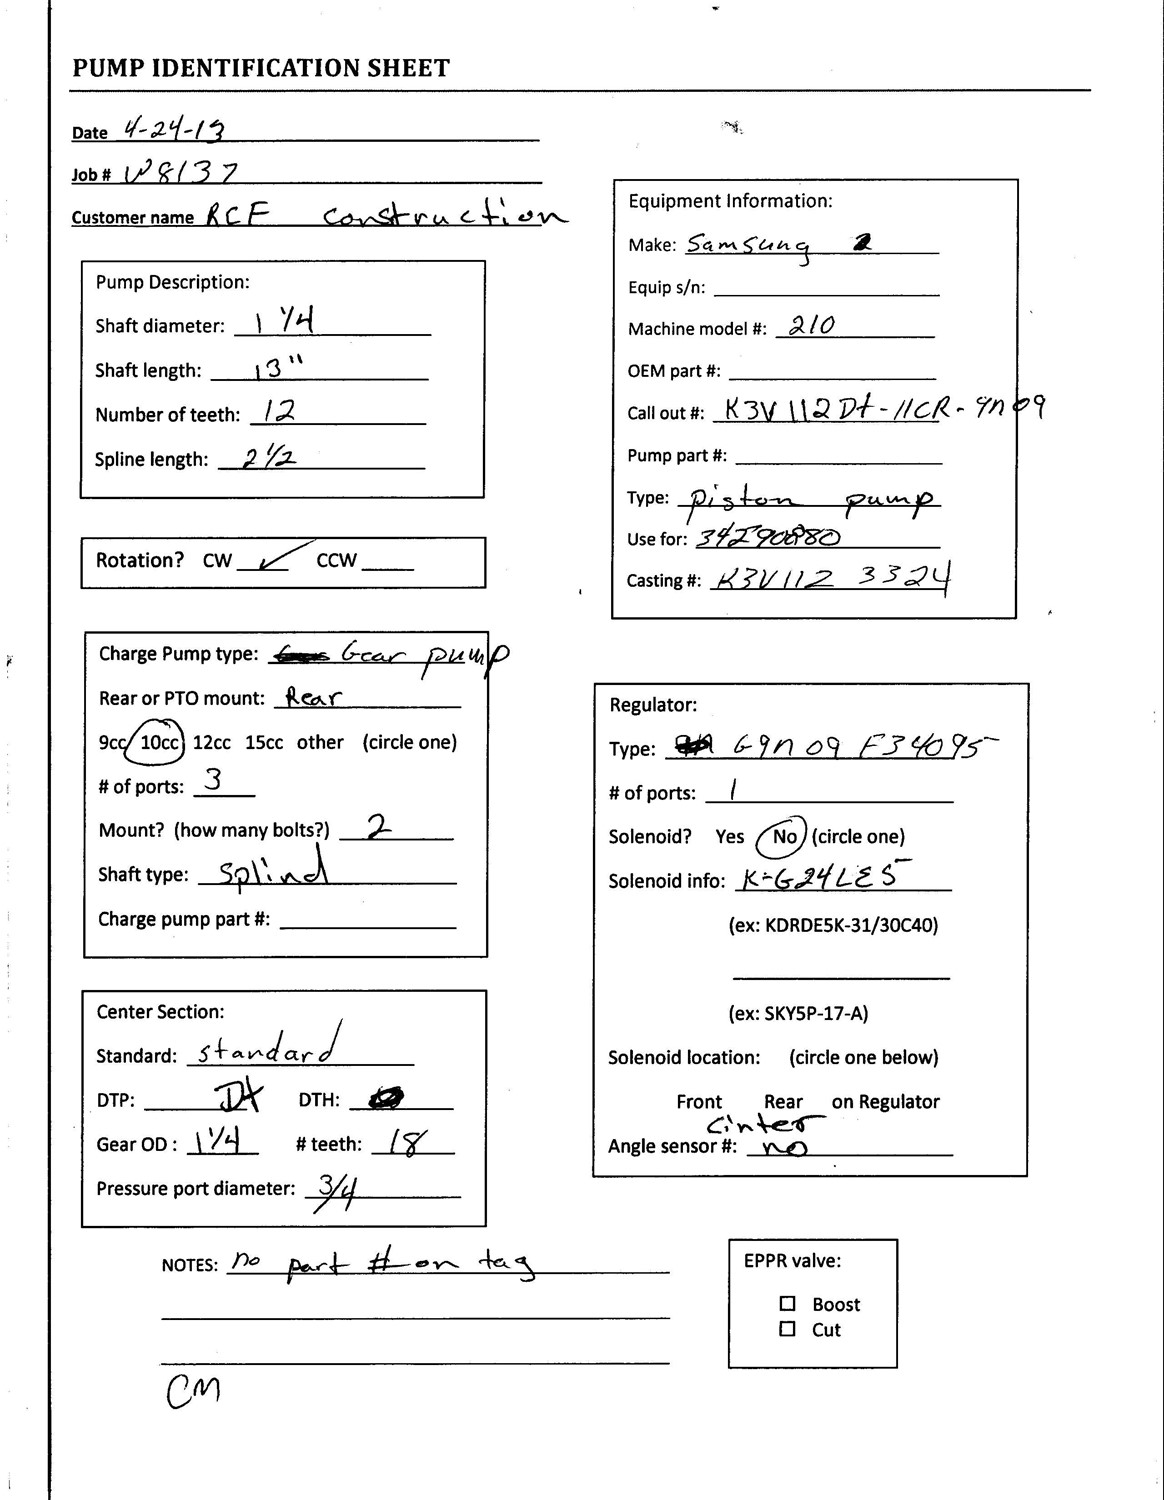 PUMP IDENTIFICATION SHEET
Date 4-24-13
Job # W8137
Customer name RCF construction
Pump Description:
Shaft diameter: 1 1/4
Shaft length: 13"
Number of teeth: 12
Spline length: 2 1/2
Rotation? CW ✓ CCW
Charge Pump type: Gear pump
Rear or PTO mount: Rear
9cc 10cc 12cc 15cc other (circle one)
# of ports: 3
Mount? (how many bolts?) 2
Shaft type: splind
Charge pump part #:
Center Section:
Standard: standard
DTP: Dt DTH:
Gear OD : 1 1/4 # teeth: 18
Pressure port diameter: 3/4
Equipment Information:
Make: Samsung 2
Equip s/n:
Machine model #: 210
OEM part #:
Call out #: K3V112Dt-11CR-9n09
Pump part #:
Type: piston pump
Use for:
Casting #: K3V112 3324
Regulator:
Type: G9n09 F34095
# of ports: 1
Solenoid? Yes No (circle one)
Solenoid info: K-G24LE5
(ex: KDRDE5K-31/30C40)
(ex: SKY5P-17-A)
Solenoid location: (circle one below)
Front Rear on Regulator
Cinter
Angle sensor #: no
NOTES: no part # on tag
CM
EPPR valve:
☐ Boost
☐ Cut